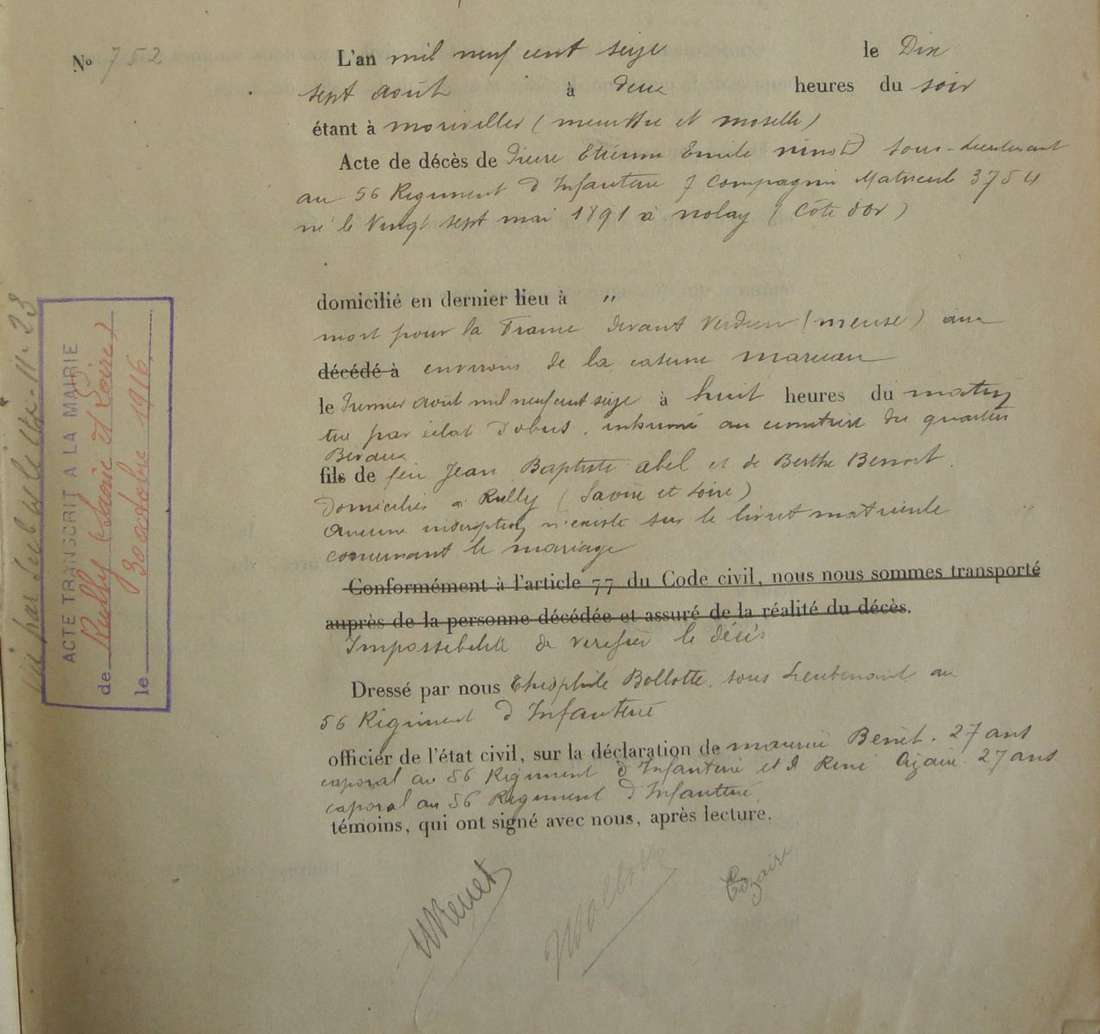 No 752
L'an mil neuf cent seize le Dix
sept août à deux heures du soir
étant à moriviller (meurthe et moselle)
Acte de décès de Pierre Etienne Emile ninot sous-Lieutenant
au 56 Regiment d Infanterie 7 Compagnie Matricule 3754
né le Vingt sept mai 1891 à nolay (Côte d'or)
domicilié en dernier lieu à "
mort pour la France devant Verdun (meuse) aux
décédé à environs de la caserne marceau
le Premier août mil neuf cent seize à huit heures du matin
tué par éclat Dobus, inhumé au cimetière du quartier
Bevaux
fils de feu Jean Baptiste abel et de Berthe Benoit.
Domiciliés à Rully (Saône et Loire)
Aucune inscription n'existe sur le livret matricule
concernant le mariage
Conformément à l'article 77 du Code civil, nous nous sommes transporté
auprès de la personne décédée et assuré de la réalité du décès.
Impossibilité de verifier le décès
Dressé par nous Théophile Bollotte, sous Lieutenant au
56 Régiment d Infanterie
officier de l'état civil, sur la déclaration de maurice Benet. 27 ans
caporal au 56 Regiment d Infanterie et d René 27 ans
caporal au 56 Regiment d Infanterie
témoins, qui ont signé avec nous, après lecture.
MBenet
ACTE TRANSCRIT A LA MAIRIE
de Rully (Saône et Loire)
le 30 octobre 1916.
11.23